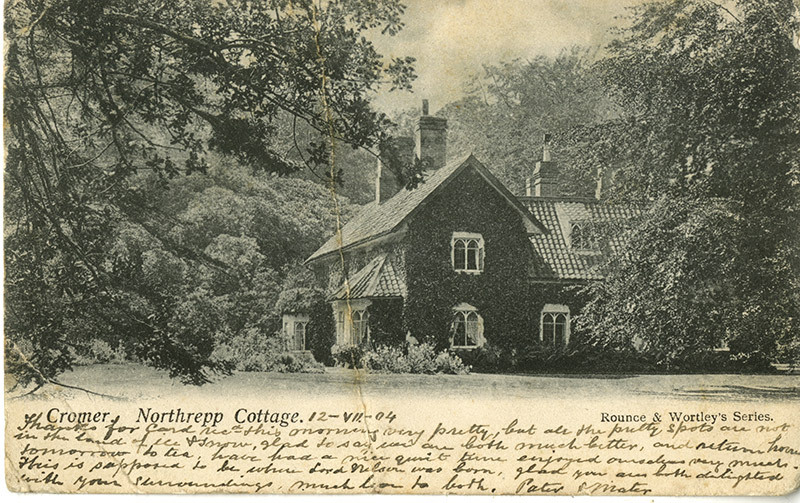 Cromer. Northrepp Cottage. 12-VII-04
Rounce & Wortley's Series.
Thanks for Card rec.d this morning very pretty, but all the pretty spots are not
in the land of ice & snow, glad to say we are both much better, and return home
tomorrow to tea, have had a nice quit time enjoyed ourselves very much.
This is supposed to be where Lord Nelson was born, glad you are both delighted
with your surroundings, much love to both. Pater & Mater